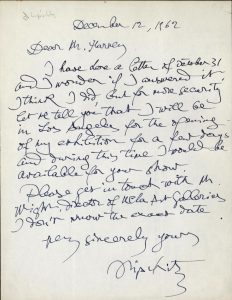 Lipchitz
December 12, 1962
Dear Mr. Harvey
I have here a letter of October 31
and I wonder if I answered it.
I think I did, but for more security
let me tell you that I will be
in Los Angeles for the opening
of my exhibition for a few days
and during this time I would be
available for your show.
Please get in touch with Mr.
Wight director of UCLA Art Galleries
I don't know the exact date
very sincerely yours
Lipchitz